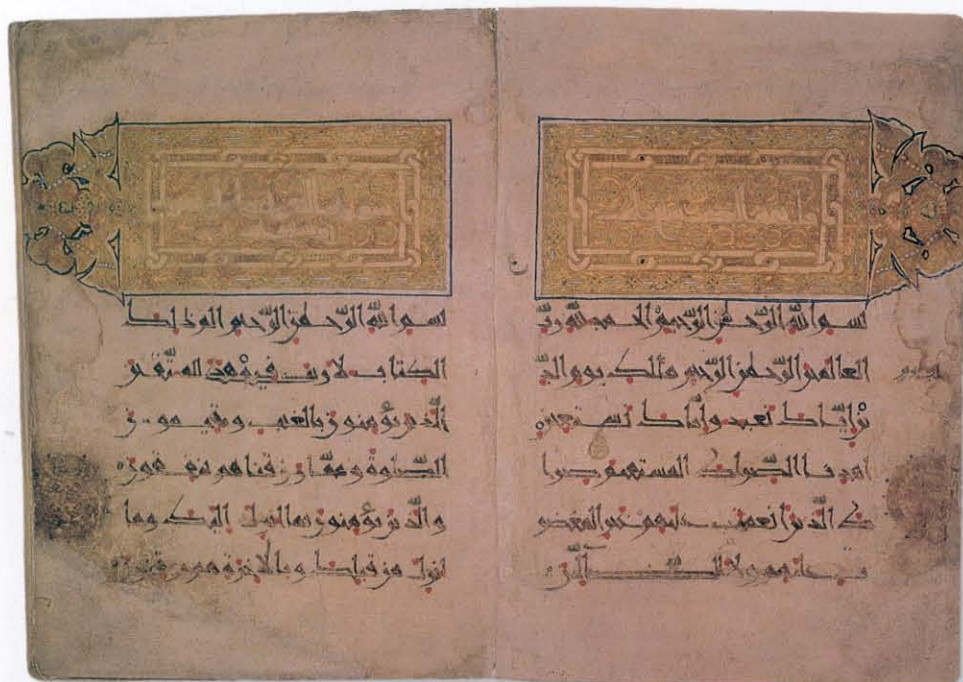 بسم الله الرّحمن الرّحيم الحمد لله ربّ
العالمين الرّحمن الرّحيم ملك يوم الدّ
ين إيّاك نعبد وإيّاك نستعين
اهدنا الصّراط المستقيم صرا
ط الّذين أنعمت عليهم غير المغضو
ب عليهم ولا الضّآلّين
بسم الله الرّحمن الرّحيم الم ذلك
الكتاب لا ريب فيه هدى للمتّقين
الّذين يؤمنون بالغيب ويقيمون
الصّلوة وممّا رزقناهم ينفقون
والّذين يؤمنون بما أنزل إليك وما
أنزل من قبلك وبالآخرة هم يوقنون